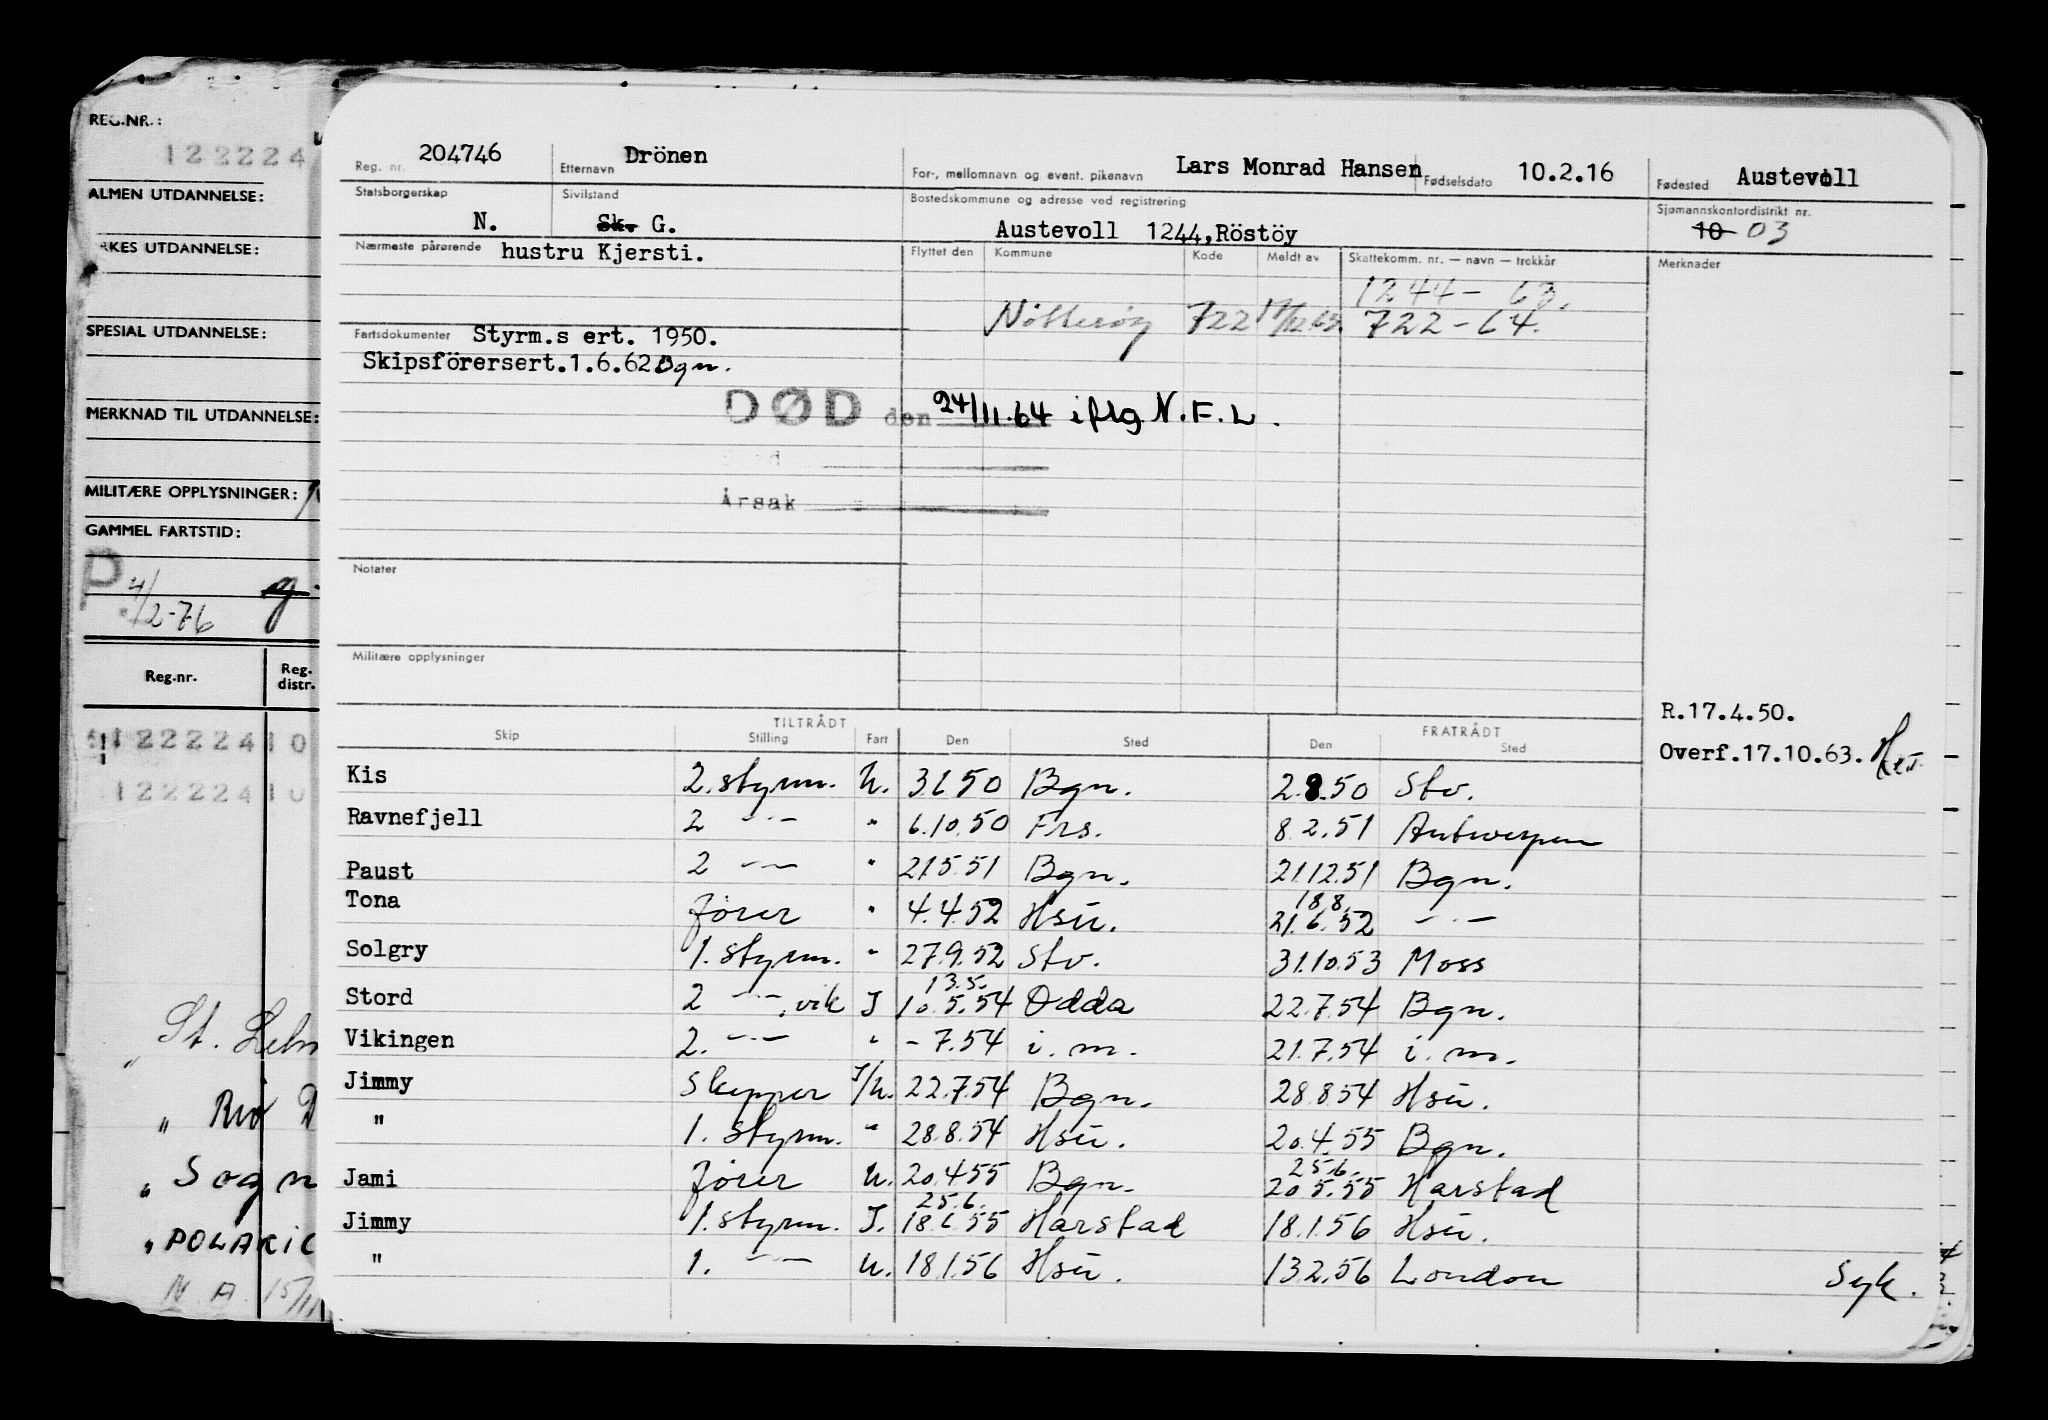 REG.NR.:
122224
ALMEN UTDANNELSE:
RKES UTDANNELSE:
SPESIAL UTDANNELSE:
MERKNAD TIL UTDANNELSE:
MILITÆRE OPPLYSNINGER:
GAMMEL FARTSTID:
P 4/2-76
Reg.nr. Reg. distr.
122224 10
122224 10
St.
" Rio D
" Sogn
" POLARIC
N. A. 15/11
Reg. nr. 204746 Etternavn Drönen For-, mellomnavn og event. pikenavn Lars Monrad Hansen Fødselsdato 10.2.16 Fødested Austevoll
Statsborgerskap N. Sivilstand Sk. G. Bostedskommune og adresse ved registrering Austevoll 1244,Röstöy Sjømannskontordistrikt nr. 10 03
Nærmeste pårørende hustru Kjersti. Flyttet den Kommune Kode Meldt av Skattekomm. nr. — navn — trekkår Merknader
1244 - 63.
Nötteröy 722 17/12.63. 722-64.
Fartsdokumenter Styrm.s ert. 1950.
Skipsförersert.1.6.62 Bgn.
DØD den 24/11.64 iflg N.F.L.
Årsak
Notater
Militære opplysninger
R.17.4.50.
Overf.17.10.63.
TILTRÅDT FRATRÅDT
Skip Stilling Fart Den Sted Den Sted
Kis 2. styrm. U. 3.6.50 Bgn. 2.8.50 Stv.
Ravnefjell 2 -"- " 6.10.50 Frs. 8.2.51 Antwerpen
Paust 2 -"- " 21.5.51 Bgn. 21.12.51 Bgn.
Tona fører " 4.4.52 Hsu. 18.8. 21.6.52 -"-
Solgry 1. styrm. " 27.9.52 Stv. 31.10.53 Moss
Stord 2 -"-, vik I 13.5. 10.5.54 Odda 22.7.54 Bgn.
Vikingen 2. -"- " - 7.54 i. m. 21.7.54 i. m.
Jimmy Skipper I/U. 22.7.54 Bgn. 28.8.54 Hsu.
" 1. Styrm. " 28.8.54 Hsu. 20.4.55 Bgn.
Jami fører U. 20.4.55 Bgn. 25.6. 20.5.55 Harstad
Jimmy 1. styrm. I. 25.6. 18.6.55 Harstad 18.1.56 Hsu.
" 1. -"- U. 18.1.56 Hsu. 13.2.56 London Syk.